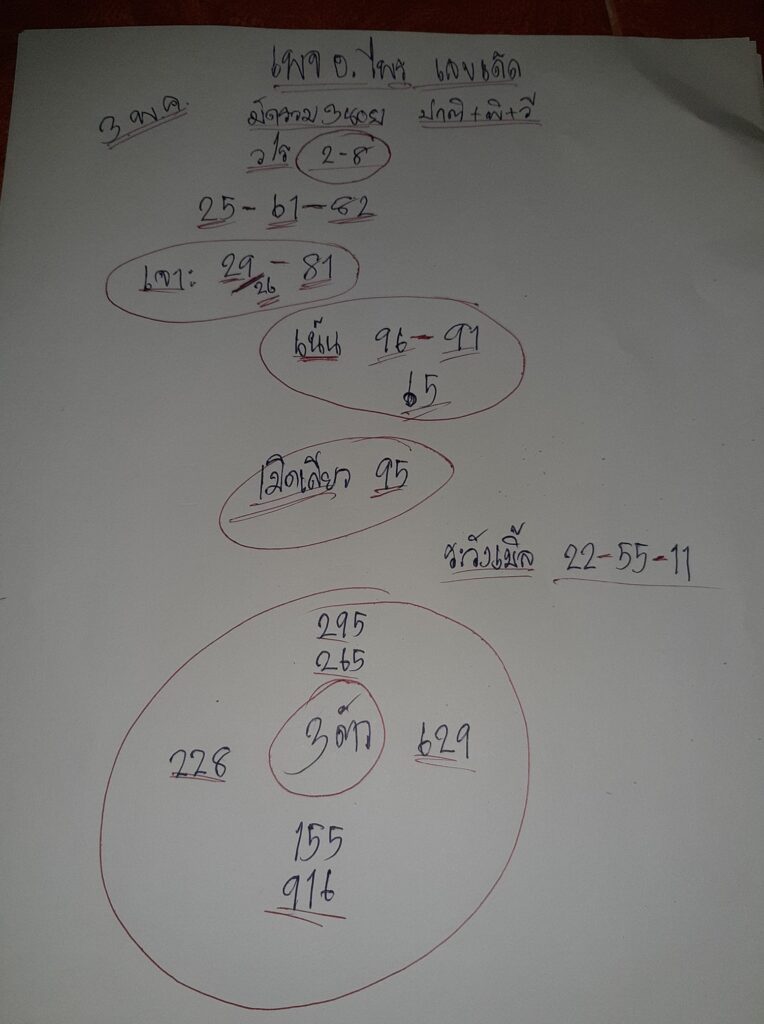 เพจ อ.ไพร เลขเด็ด
3 พ.ค. มัดรวม 3 หนอย ปาติ+พิ+วี
วิ่ง 2-8
25-61-82
เจาะ 29-81
26
เน้น 96-91
65
เม็ดเสียว 95
ระวังเบิ้ล 22-55-11
295
265
3 ตัว
228 629
155
916